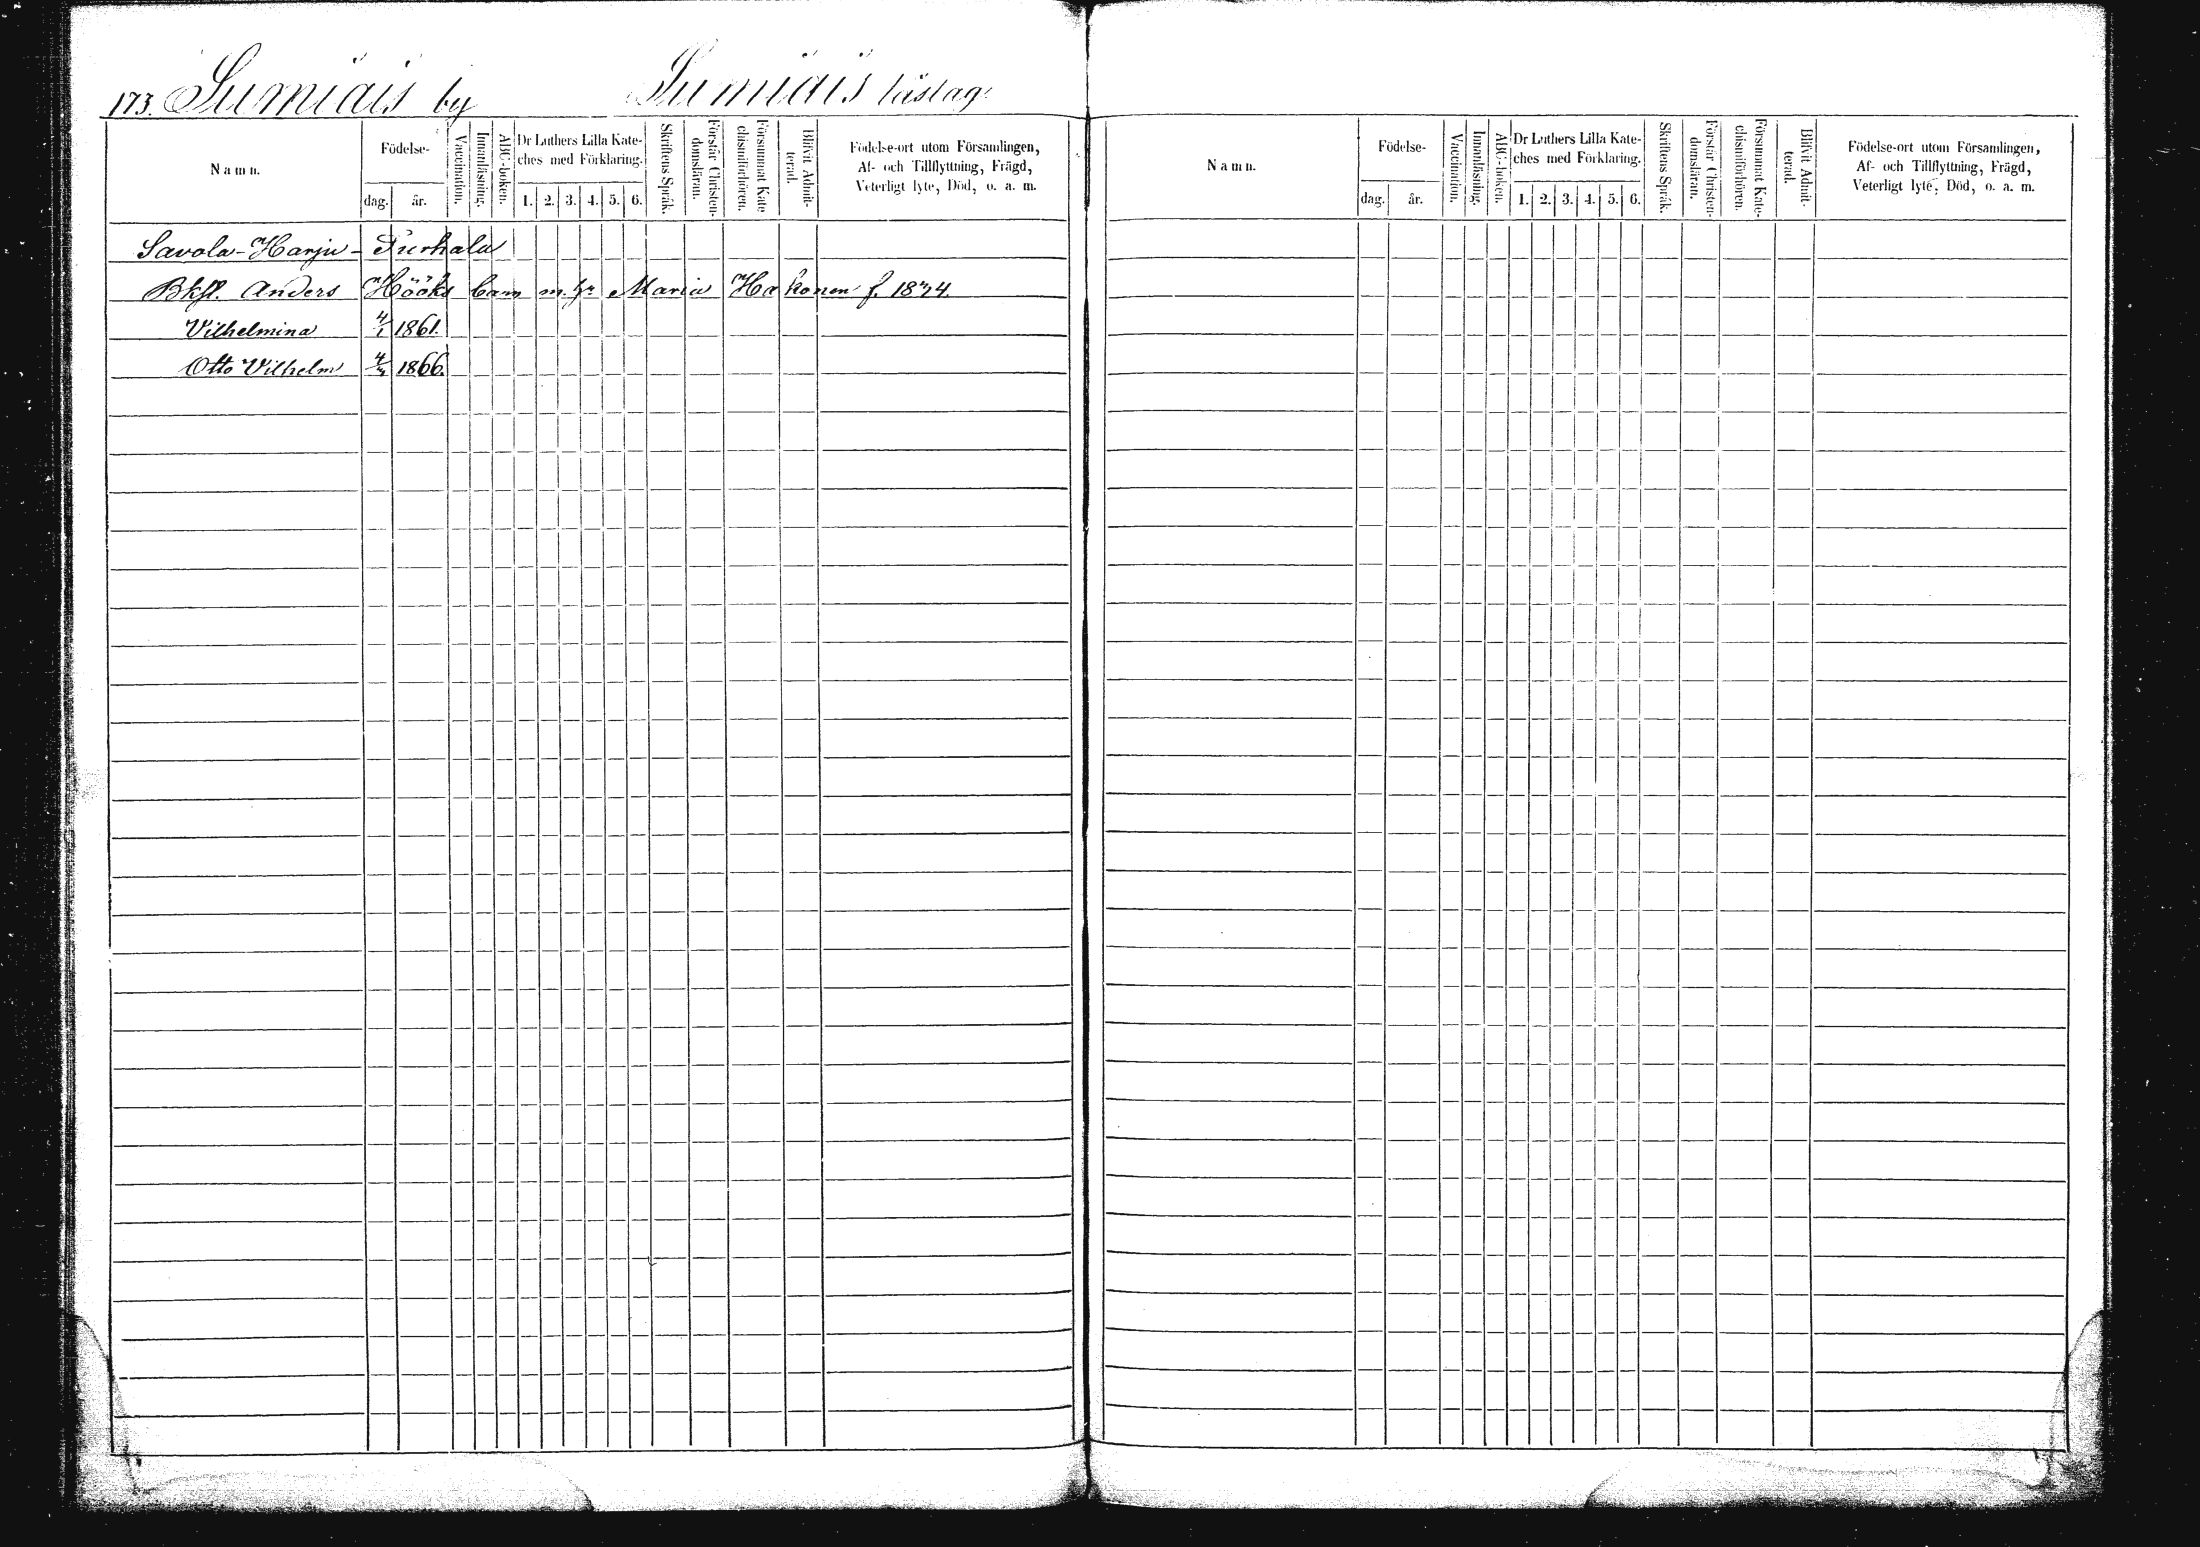 173. Sumiais by Sumiais läslag
Namn.
Födelse-
dag. år.
Vaccination.
Innanläsning.
ABC-boken.
Dr Luthers Lilla Kate-
ches med Förklaring.
1. 2. 3. 4. 5. 6.
Skriftens Språk.
Förstår Christen-
domsläran.
Försummat Kate-
chismiförhören.
Blifvit Admit-
terad.
Födelse-ort utom Församlingen,
Af- och Tillflyttning, Frägd,
Veterligt lyte, Död, o. a. m.
Savola-Harju-
Bkfl. Anders Hööks barn m. Maria Hakonen f. 1824.
Vilhelmina 4/1 1861.
Otto Vilhelm 1866.
Namn.
Födelse-
dag. år.
Vaccination.
Innanläsning.
ABC-boken.
Dr Luthers Lilla Kate-
ches med Förklaring.
1. 2. 3. 4. 5. 6.
Skriftens Språk.
Förstår Christen-
domsläran.
Försummat Kate-
chismiförhören.
Blifvit Admit-
terad.
Födelse-ort utom Församlingen,
Af- och Tillflyttning, Frägd,
Veterligt lyte, Död, o. a. m.